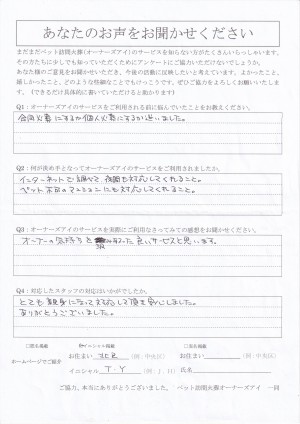 あなたのお声をお聞かせください
まだまだペット訪問火葬(オーナーズアイ)のサービスを知らない方がたくさんいらっしゃいます。
その方たちに少しでも知っていただくためにアンケートにご協力いただけないでしょうか。
あなた様のご意見をお聞かせいただき、今後の活動に反映したいと考えています。よかったこと、
嬉しかったこと、どのような些細なことでもけっこうです。ぜひご協力をよろしくお願いいたします。
(できるだけ具体的に書いていただけると助かります)
Q1:オーナーズアイのサービスをご利用される前に悩んでいたことをお教えください。
合同火葬にするか個人火葬にするか迷いました。
Q2:何が決め手となってオーナーズアイのサービスをご利用されましたか。
インターネットで調べて、夜間も対応してくれること。
ペット不可のマンションにも対応してくれること。
Q3:オーナーズアイのサービスを実際にご利用なさってみての感想をお聞かせください。
オーナーの気持ちを 良いサービスと思います。
Q4:対応したスタッフの対応はいかがでしたか。
とても親身になって対応して頂き安心しました。
ありがとうございました。
□匿名掲載 イニシャル掲載 □実名掲載
ホームページでご紹介
お住まい 北区 (例:中央区) お住まい (例:中央区)
イニシャル T・Y (例:J.H) 氏名
ご協力、本当にありがとうございました。 ペット訪問火葬オーナーズアイ 一同